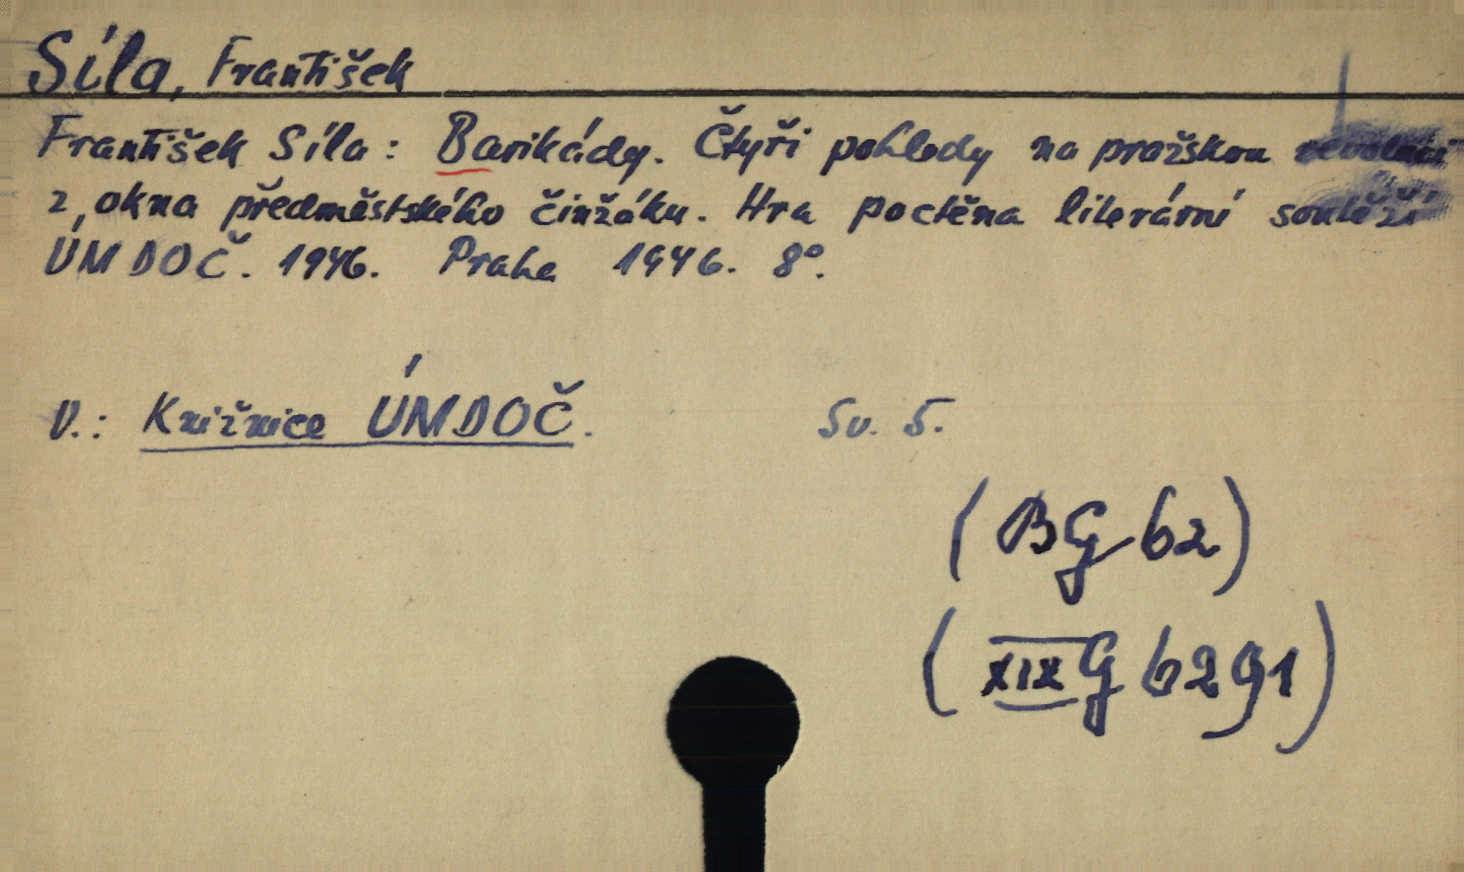 Síla, František
František Síla: Barikády. Čtyři pohledy na pražskou revoluci
z okna předměstského činžáku. Hra poctěna literární soutěží
ÚMDOČ. 1946. Praha 1946. 8°.
V.: Knižnice ÚMDOČ. Sv. 5.
(BG 62)
(XIX G 6291)